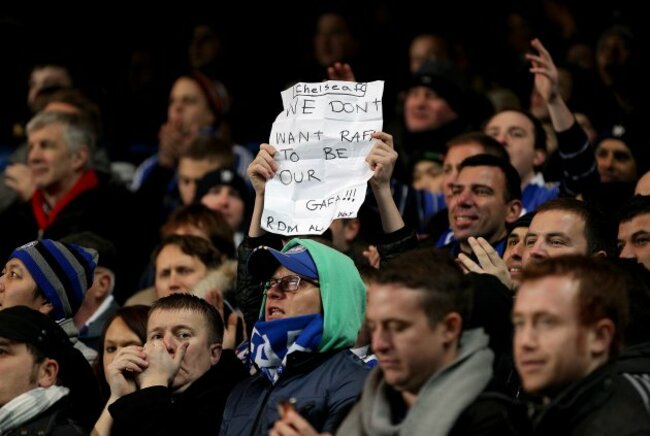 Chelsea FC
WE DON'T
WANT RAFA
TO BE
OUR
GAFA!!!
RDM ALL